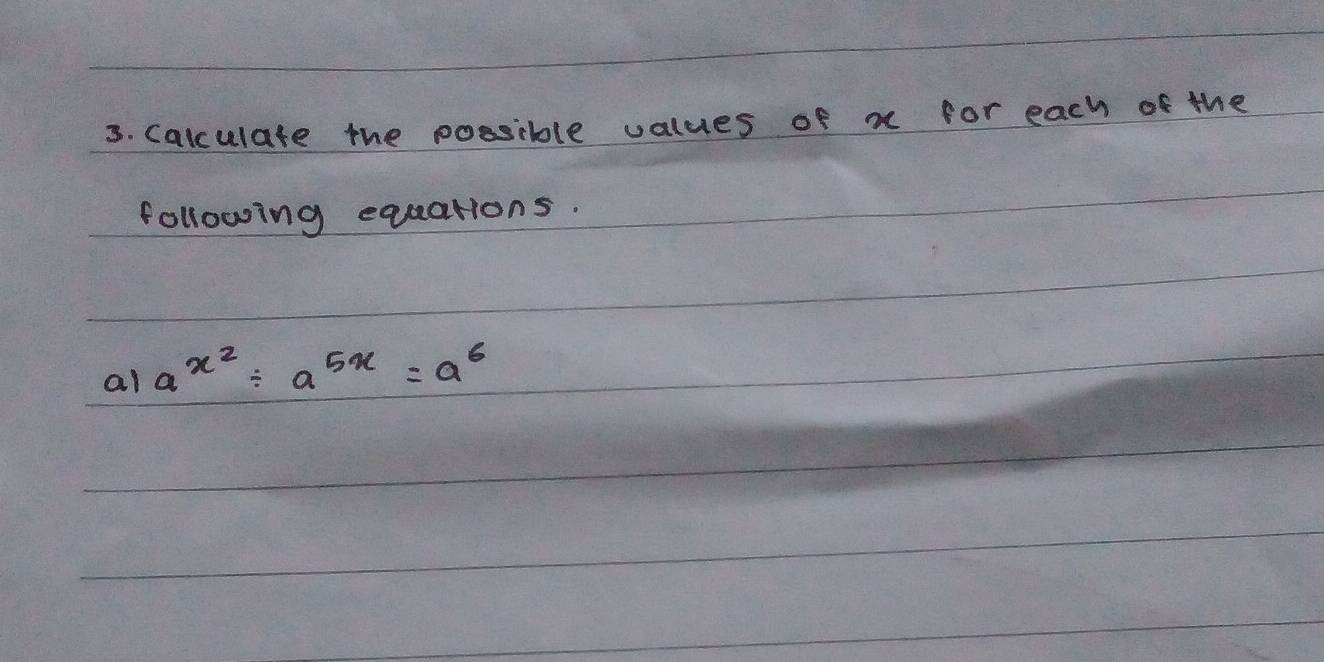 3. Calculate the possible values of x for each of the
following equations.
a) a^{x^2} ÷ a^{5x} = a^6